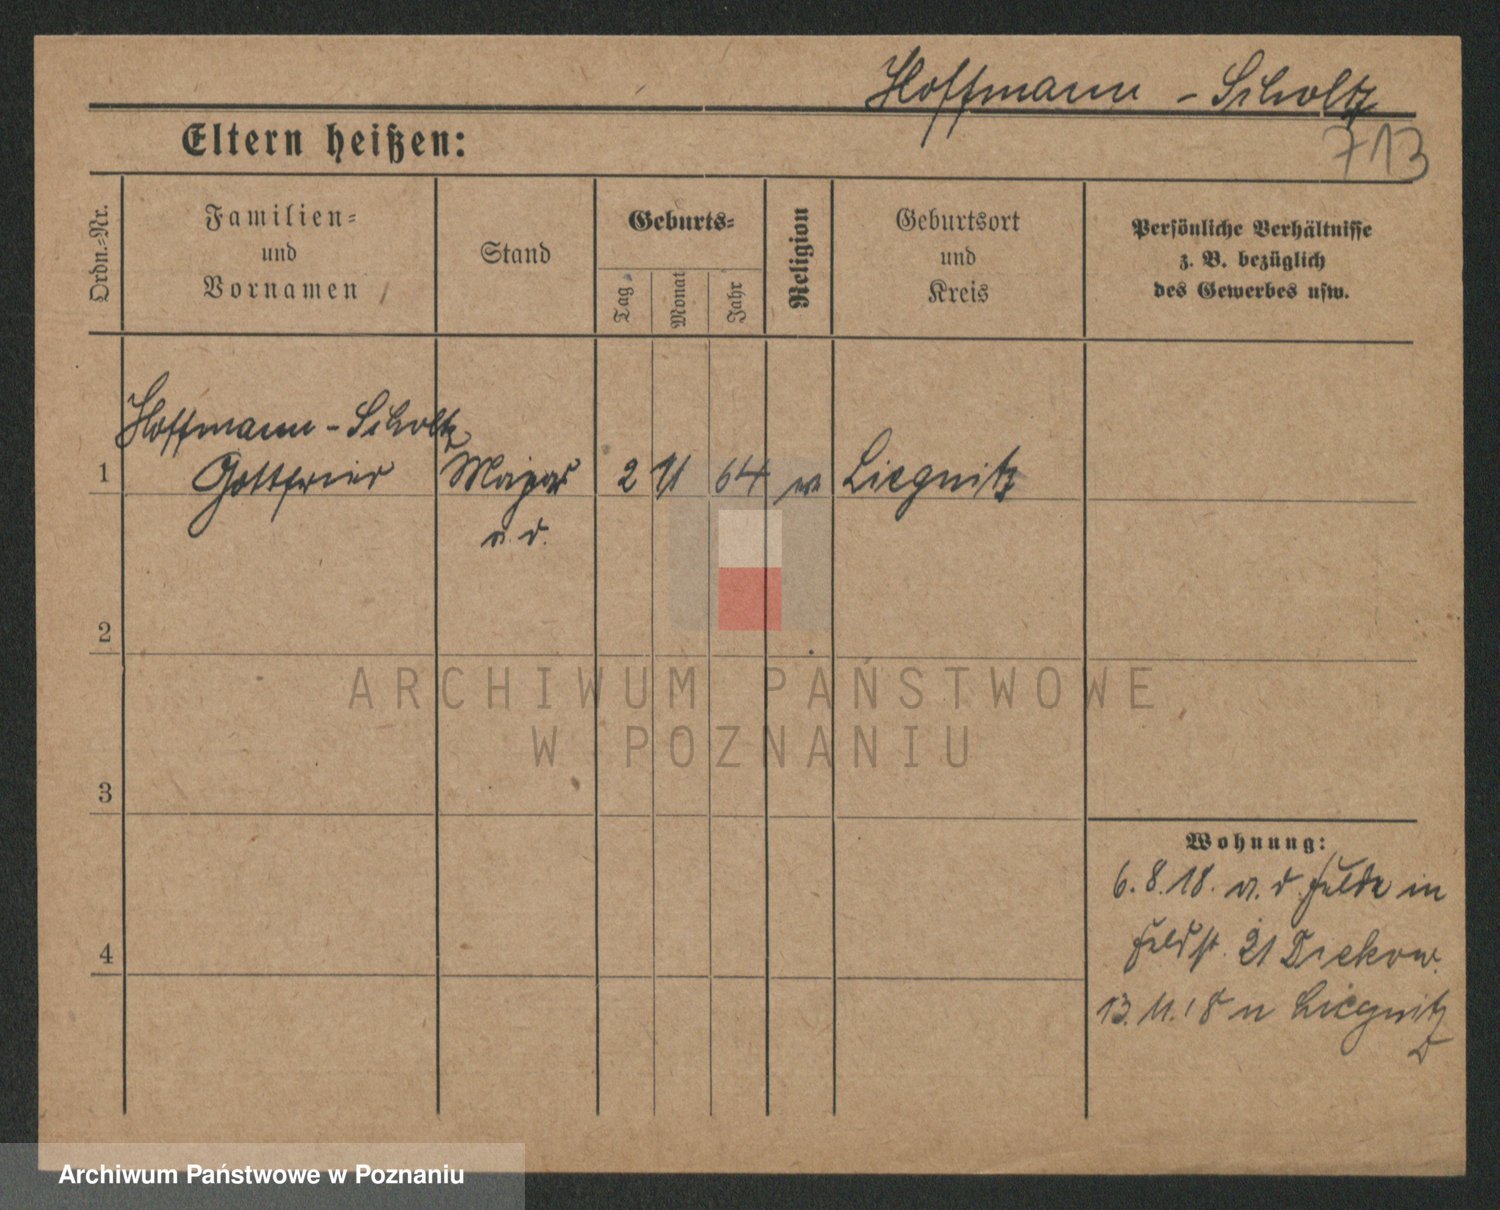 Hoffmann - Scholtz
713
Eltern heißen:
Ordn.-Nr.
Familien-
und
Vornamen
Stand
Geburts-
Tag
Monat
Jahr
Religion
Geburtsort
und
Kreis
Persönliche Verhältnisse
z. B. bezüglich
des Gewerbes usw.
Hoffmann - Scholtz
1 Gottfried Major 2 11 64 ev Liegnitz
a. D.
2
3
4
Wohnung:
6. 8. 18. a. d. Felde in
21
13. 11. 18 n Liegnitz
ARCHIWUM PAŃSTWOWE
W POZNANIU
Archiwum Państwowe w Poznaniu